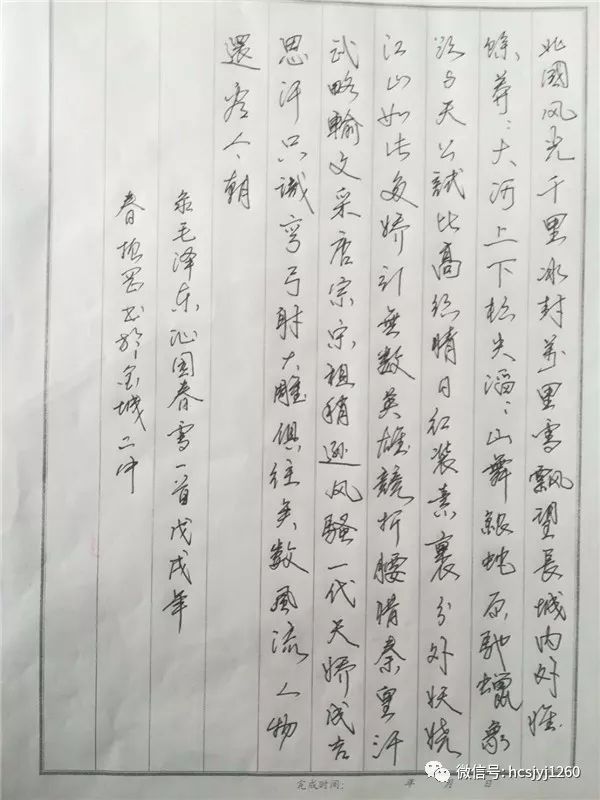 北國风光千里冰封萬里雪飄望長城内外惟
餘莽：大河上下頓失滔：山舞銀蛇原馳蠟象
欲与天公試比高須晴日红装素裹分外妖娆
江山如此多娇引無数英雄競折腰惜秦皇汗
武略輸文采唐宗宋祖稍遜风騷一代天娇成吉
思汗只識弯弓射大雕俱往矣数風流人物
還看今朝
录毛泽东沁园春雪一首戊戌年
春书於金城二中
完成时间： 年 月 日
微信号: hcsjyj1260